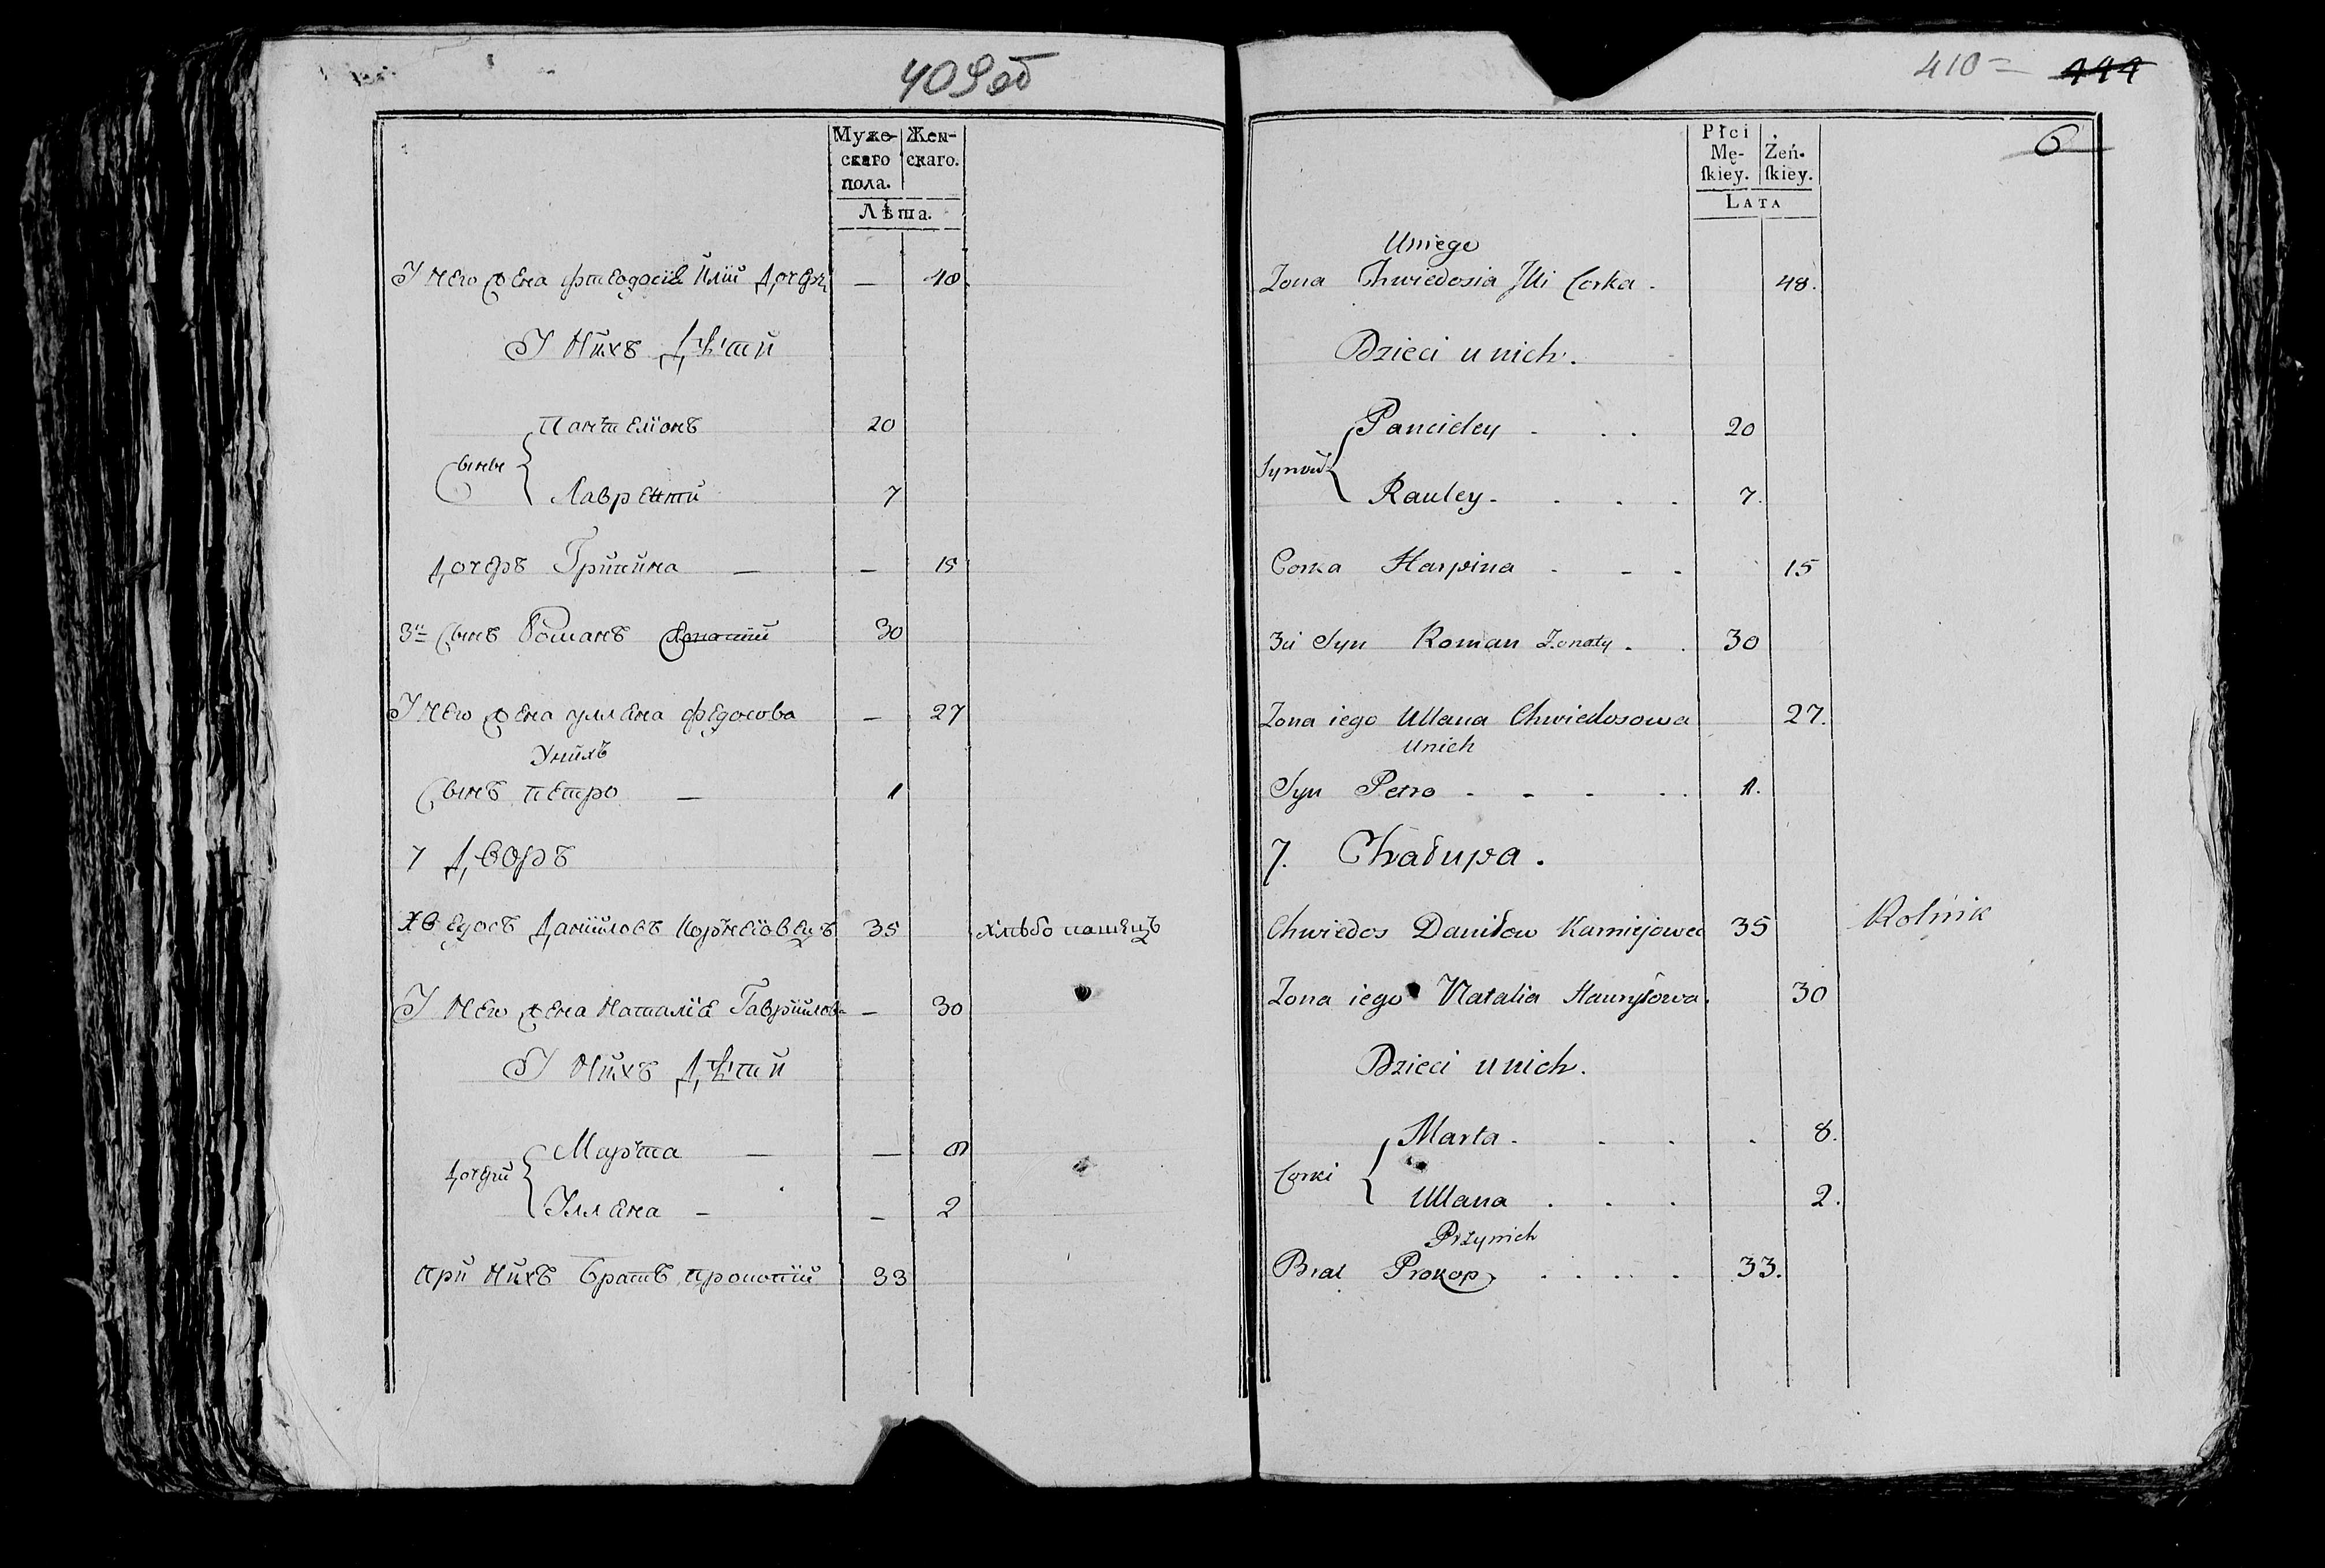 409об
Муже-
скаго
пола.
Жен-
скаго.
Лѣта.
У него жена Фтеодосія Иліи дочерь — 48
У нихъ дѣти
Сыны
Пантелїонъ 20
Лаврентіи 7
дочерь Грипина — — 15
3й Сынъ Романъ 30
У него жена Улляна Федосова — 27
У нихъ
Сынъ Петро — 1
7 дворъ
Хведосъ Даніиловъ Корнеіовецъ 35 хлѣбопашецъ
У него жена Наталія Гавріилова — 30
У нихъ дѣти
дочери
Марта — — 8
Улляна — — 2
При нихъ братъ Прокопій 33
410= 444
6
Płci
Mę-
ſkiey.
Żeń-
ſkiey.
LATA
Uniego
Zona Chwiedosia Jlli Corka. 48.
Dzieci u nich.
Synowie
Panteley 20
Rauley 7.
Corka Harpina 15
3ci Syn Roman Zonaty. 30
Zona iego Ullana Chwiedosowa 27.
Unich
Syn Petro 1.
7. Chałupa.
Chwiedos Daniłow Karniejowec 35 Rolnik
Zona iego Natalia Hauryłowa. 30
Dzieci u nich.
Corki
Marta 8.
Ullana 2.
Przynich
Brat Prokop 33.